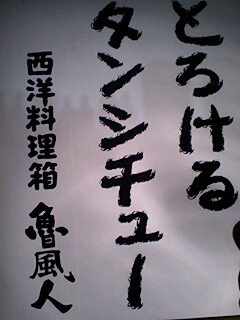 とろける
タンシチュー
西洋料理箱 魯風人